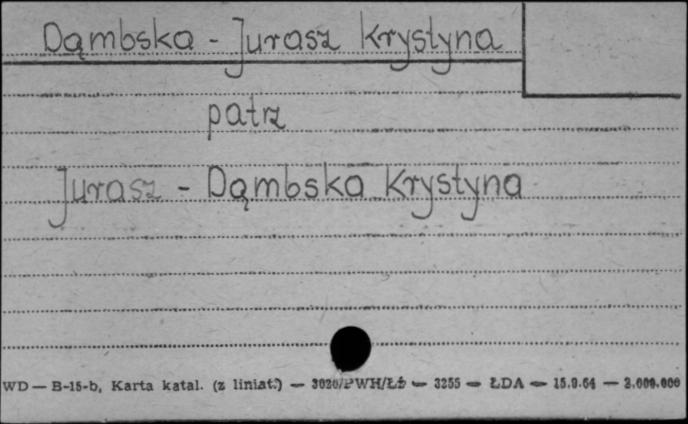 Dąmbska - Jurasz Krystyna
patrz
Jurasz - Dąmbska Krystyna
WD — B-15-b, Karta katal. (z liniat.) — 3020/PWH/Łż — 3255 — ŁDA — 15.9.64 — 2.000.000